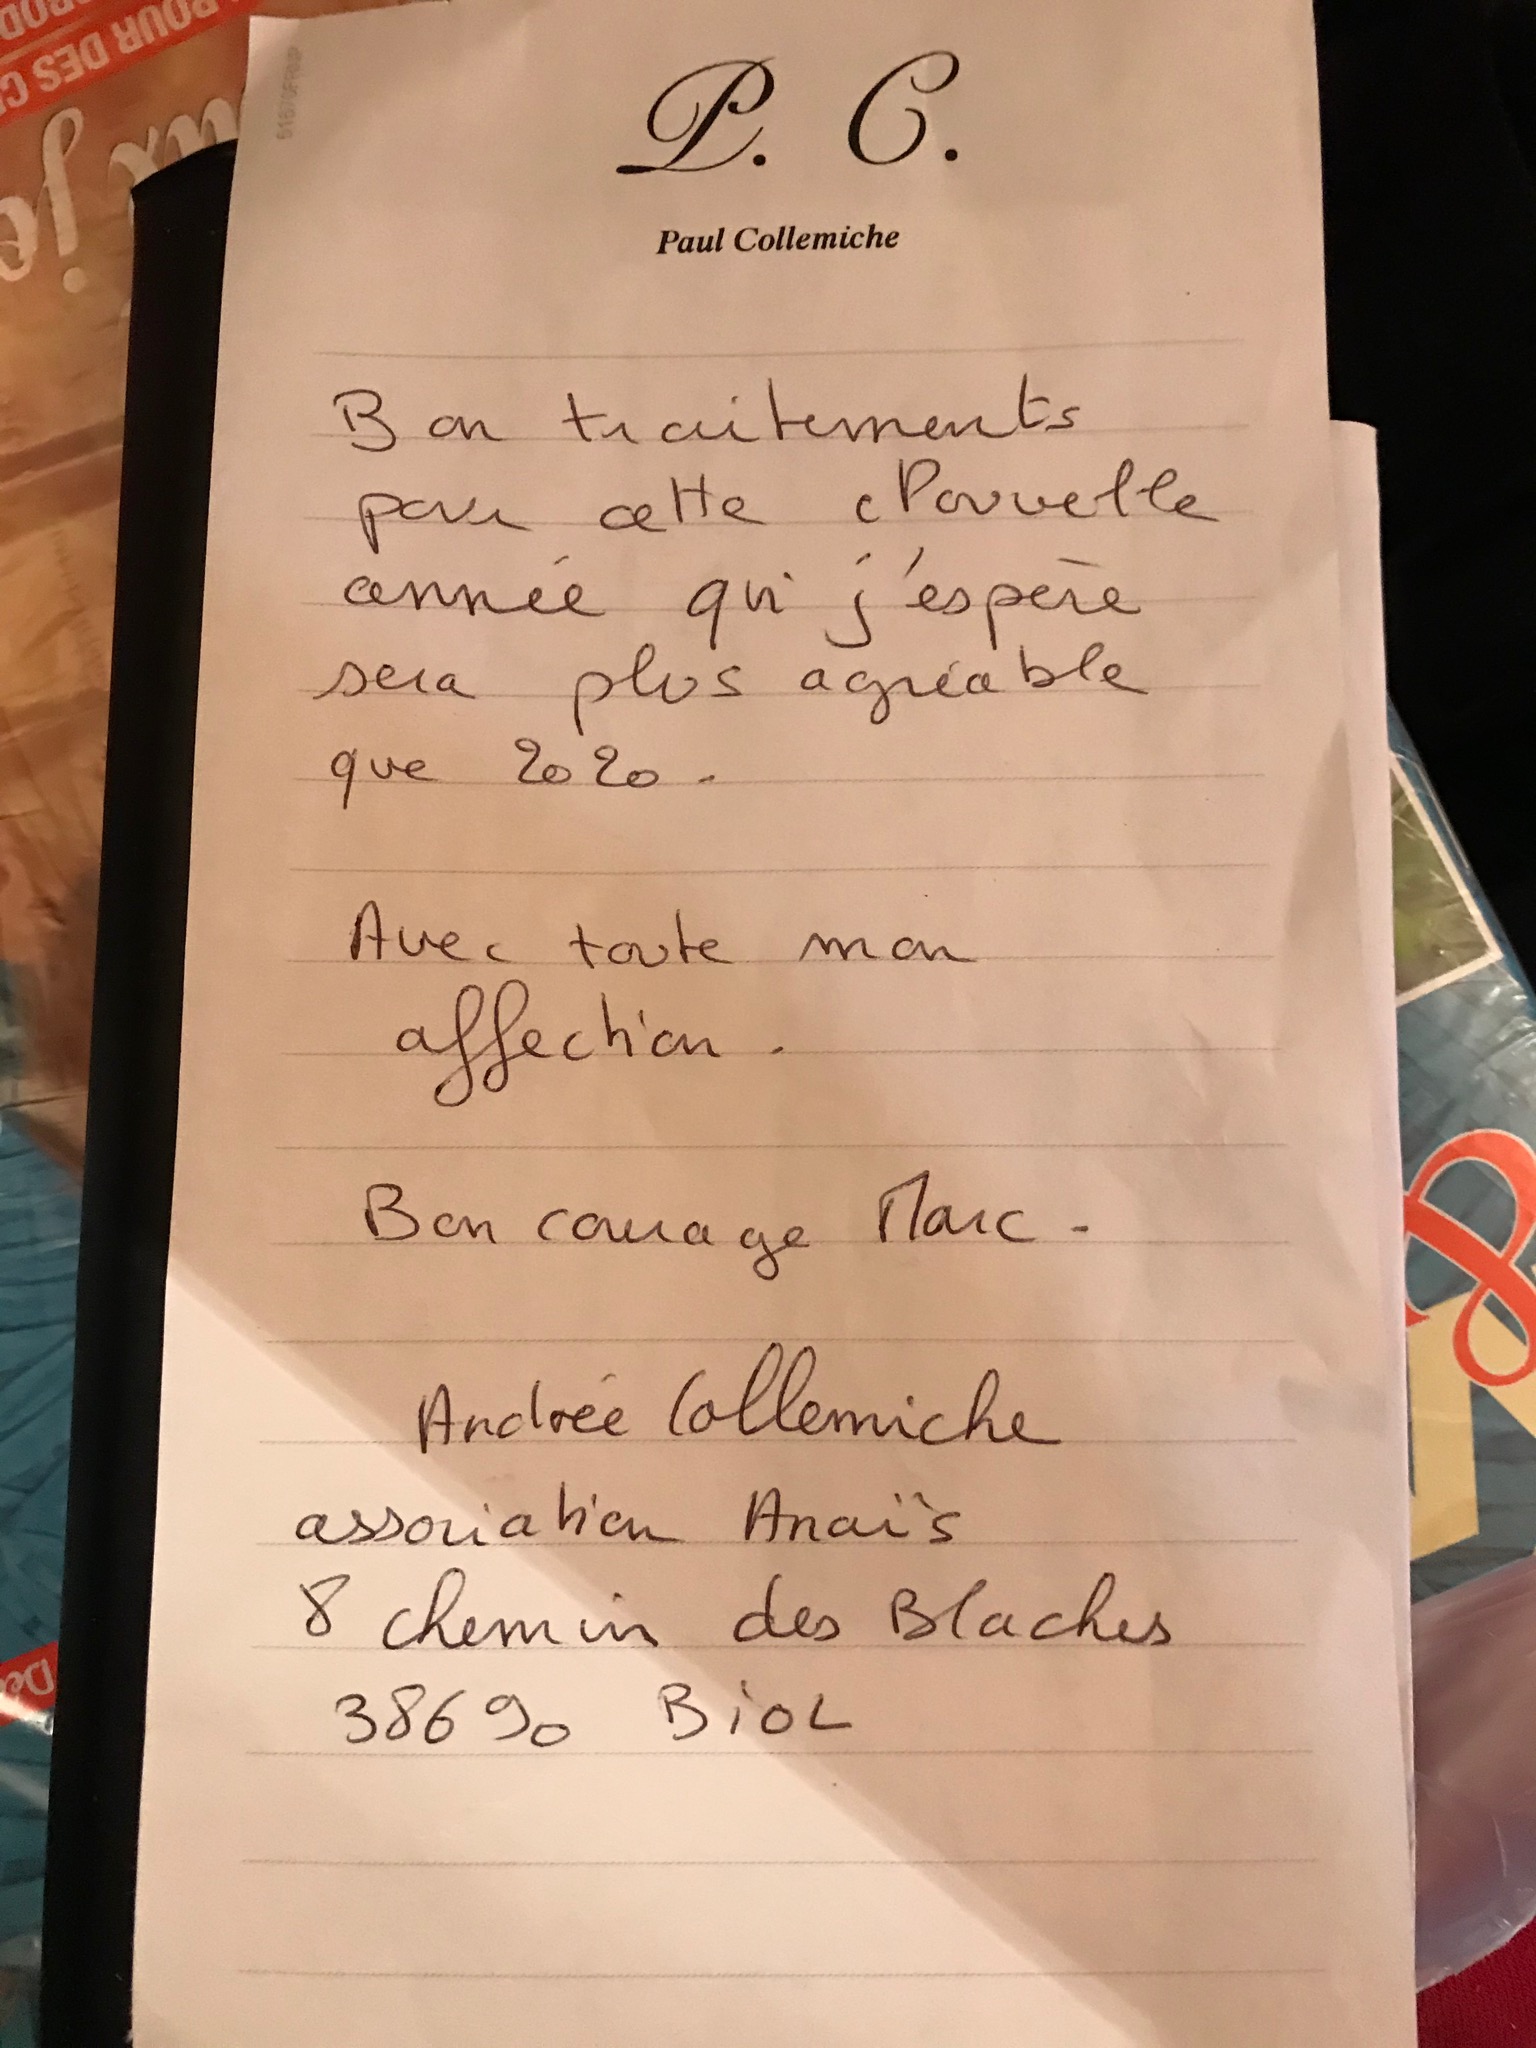 P. C.
Paul Collemiche
Bon traitements
pour cette Nouvelle
année qui j'espère
sera plus agréable
que 2020.
Avec toute mon
affection.
Bon courage Marc -
Andrée Collemiche
association Anaïs
8 chemin des Blaches
38690 BioL
POUR DES
je